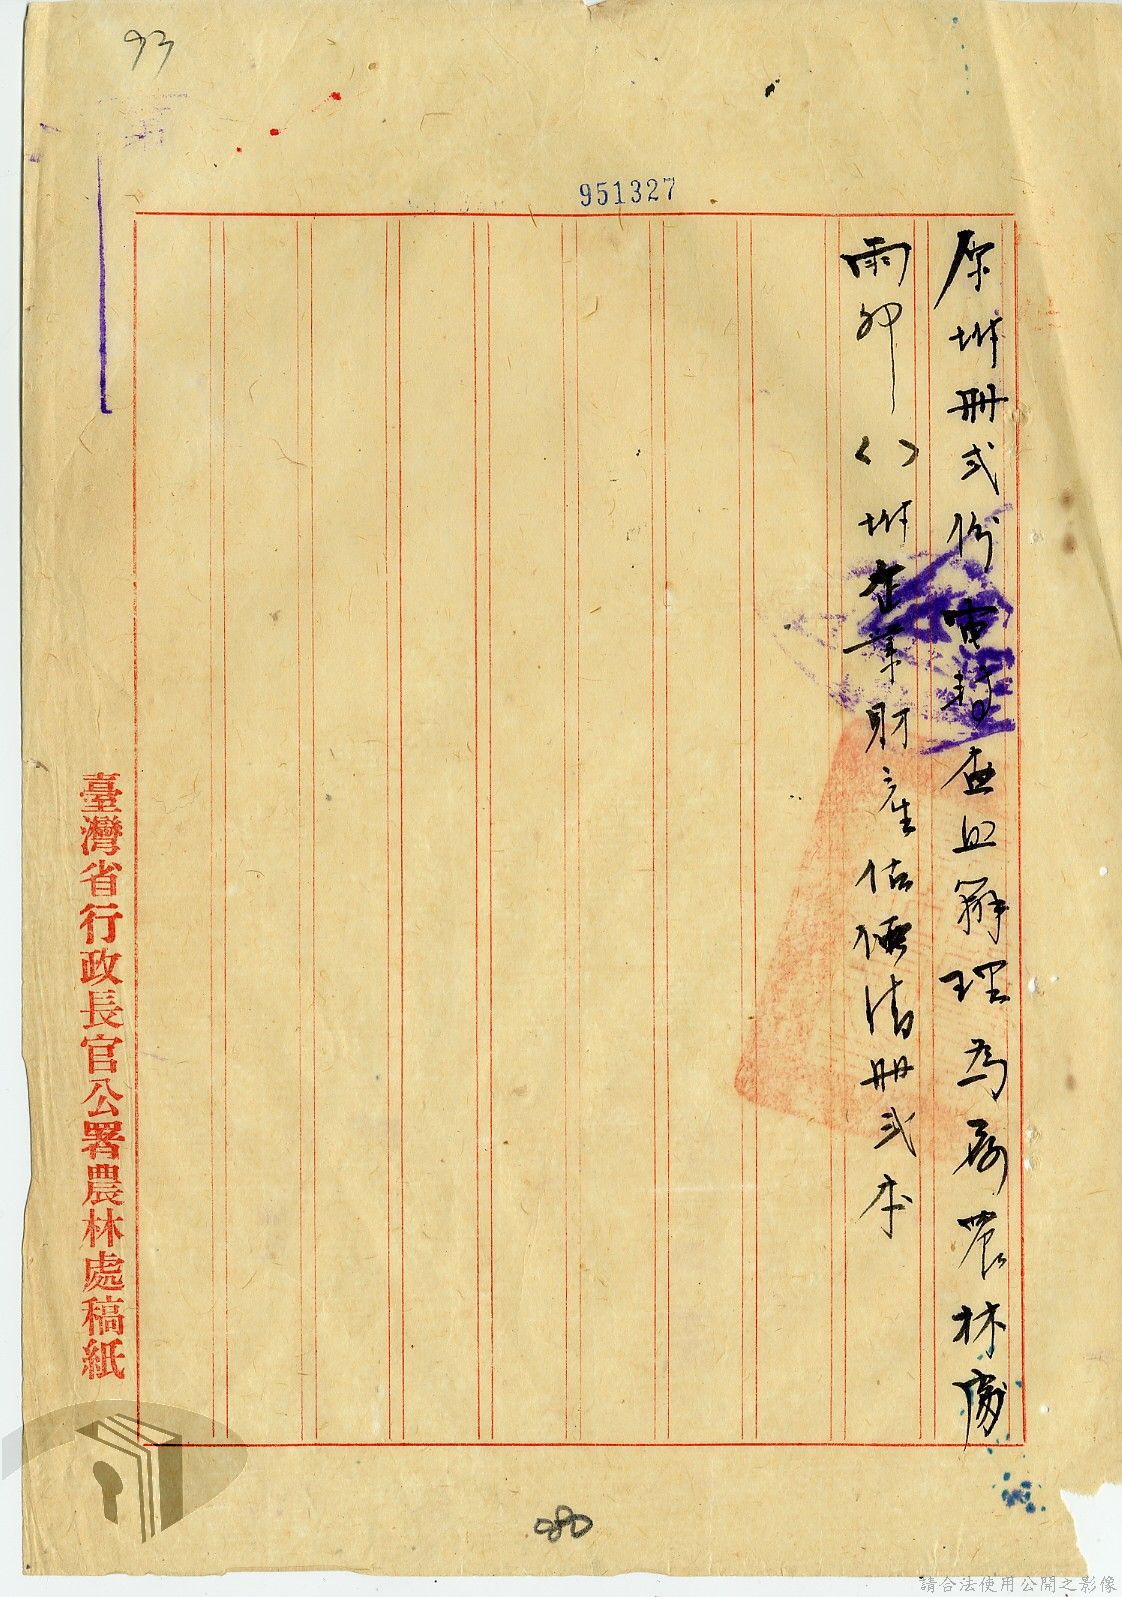 93
951327
原坿冊式份電請查照辦理為荷農林處
雨卯()坿企業財產估價清冊式本
臺灣省行政長官公署農林處稿紙
080
請合法使用公開之影像